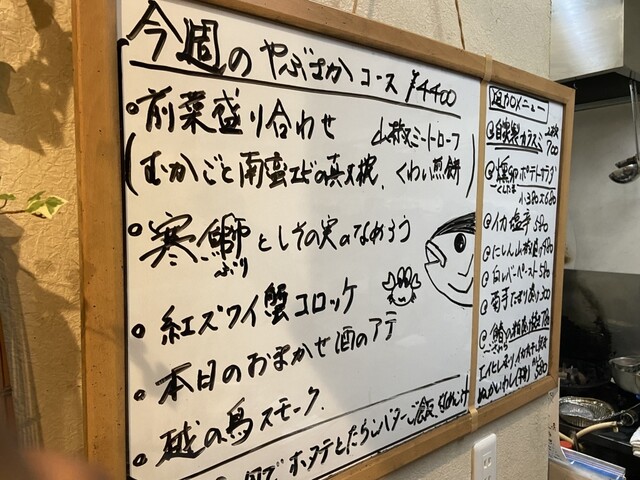 今週のやぶさかコース ¥4400
・前菜盛り合わせ 山椒ミートローフ
(むかごと南蛮エビの真丈椀、くわい煎餅)
・寒鰤としその実のなめろう
ぶり
・紅ズワイ蟹コロッケ
・本日のおまかせ酒のアテ
・越の鳥スモーク
ホタテとたらこバターご飯、なめこ汁
追加メニュー
自家製カラスミ 700
燻卵ポテトサラダ
くんたま
小380大680
イカ塩辛
にしん山椒
白レバーペースト580
エイヒレ
ぬかいわし